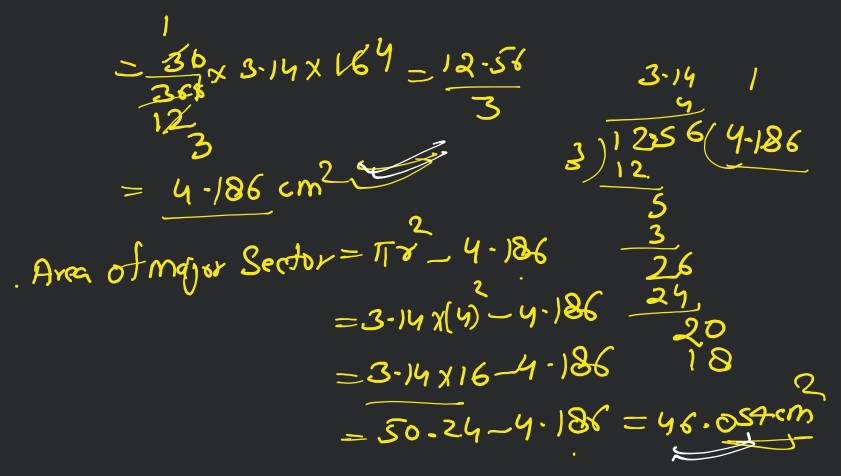 1
= 30/360 × 3.14 × 16 4 = 12.56/3
12
3
= 4.186 cm²
3.14 1
4
3)12.56(4.186
12
5
3
26
24
20
18
. Area of major Sector = πr² - 4.186
= 3.14 × (4)² - 4.186
= 3.14 × 16 - 4.186
= 50.24 - 4.186 = 46.054 cm²